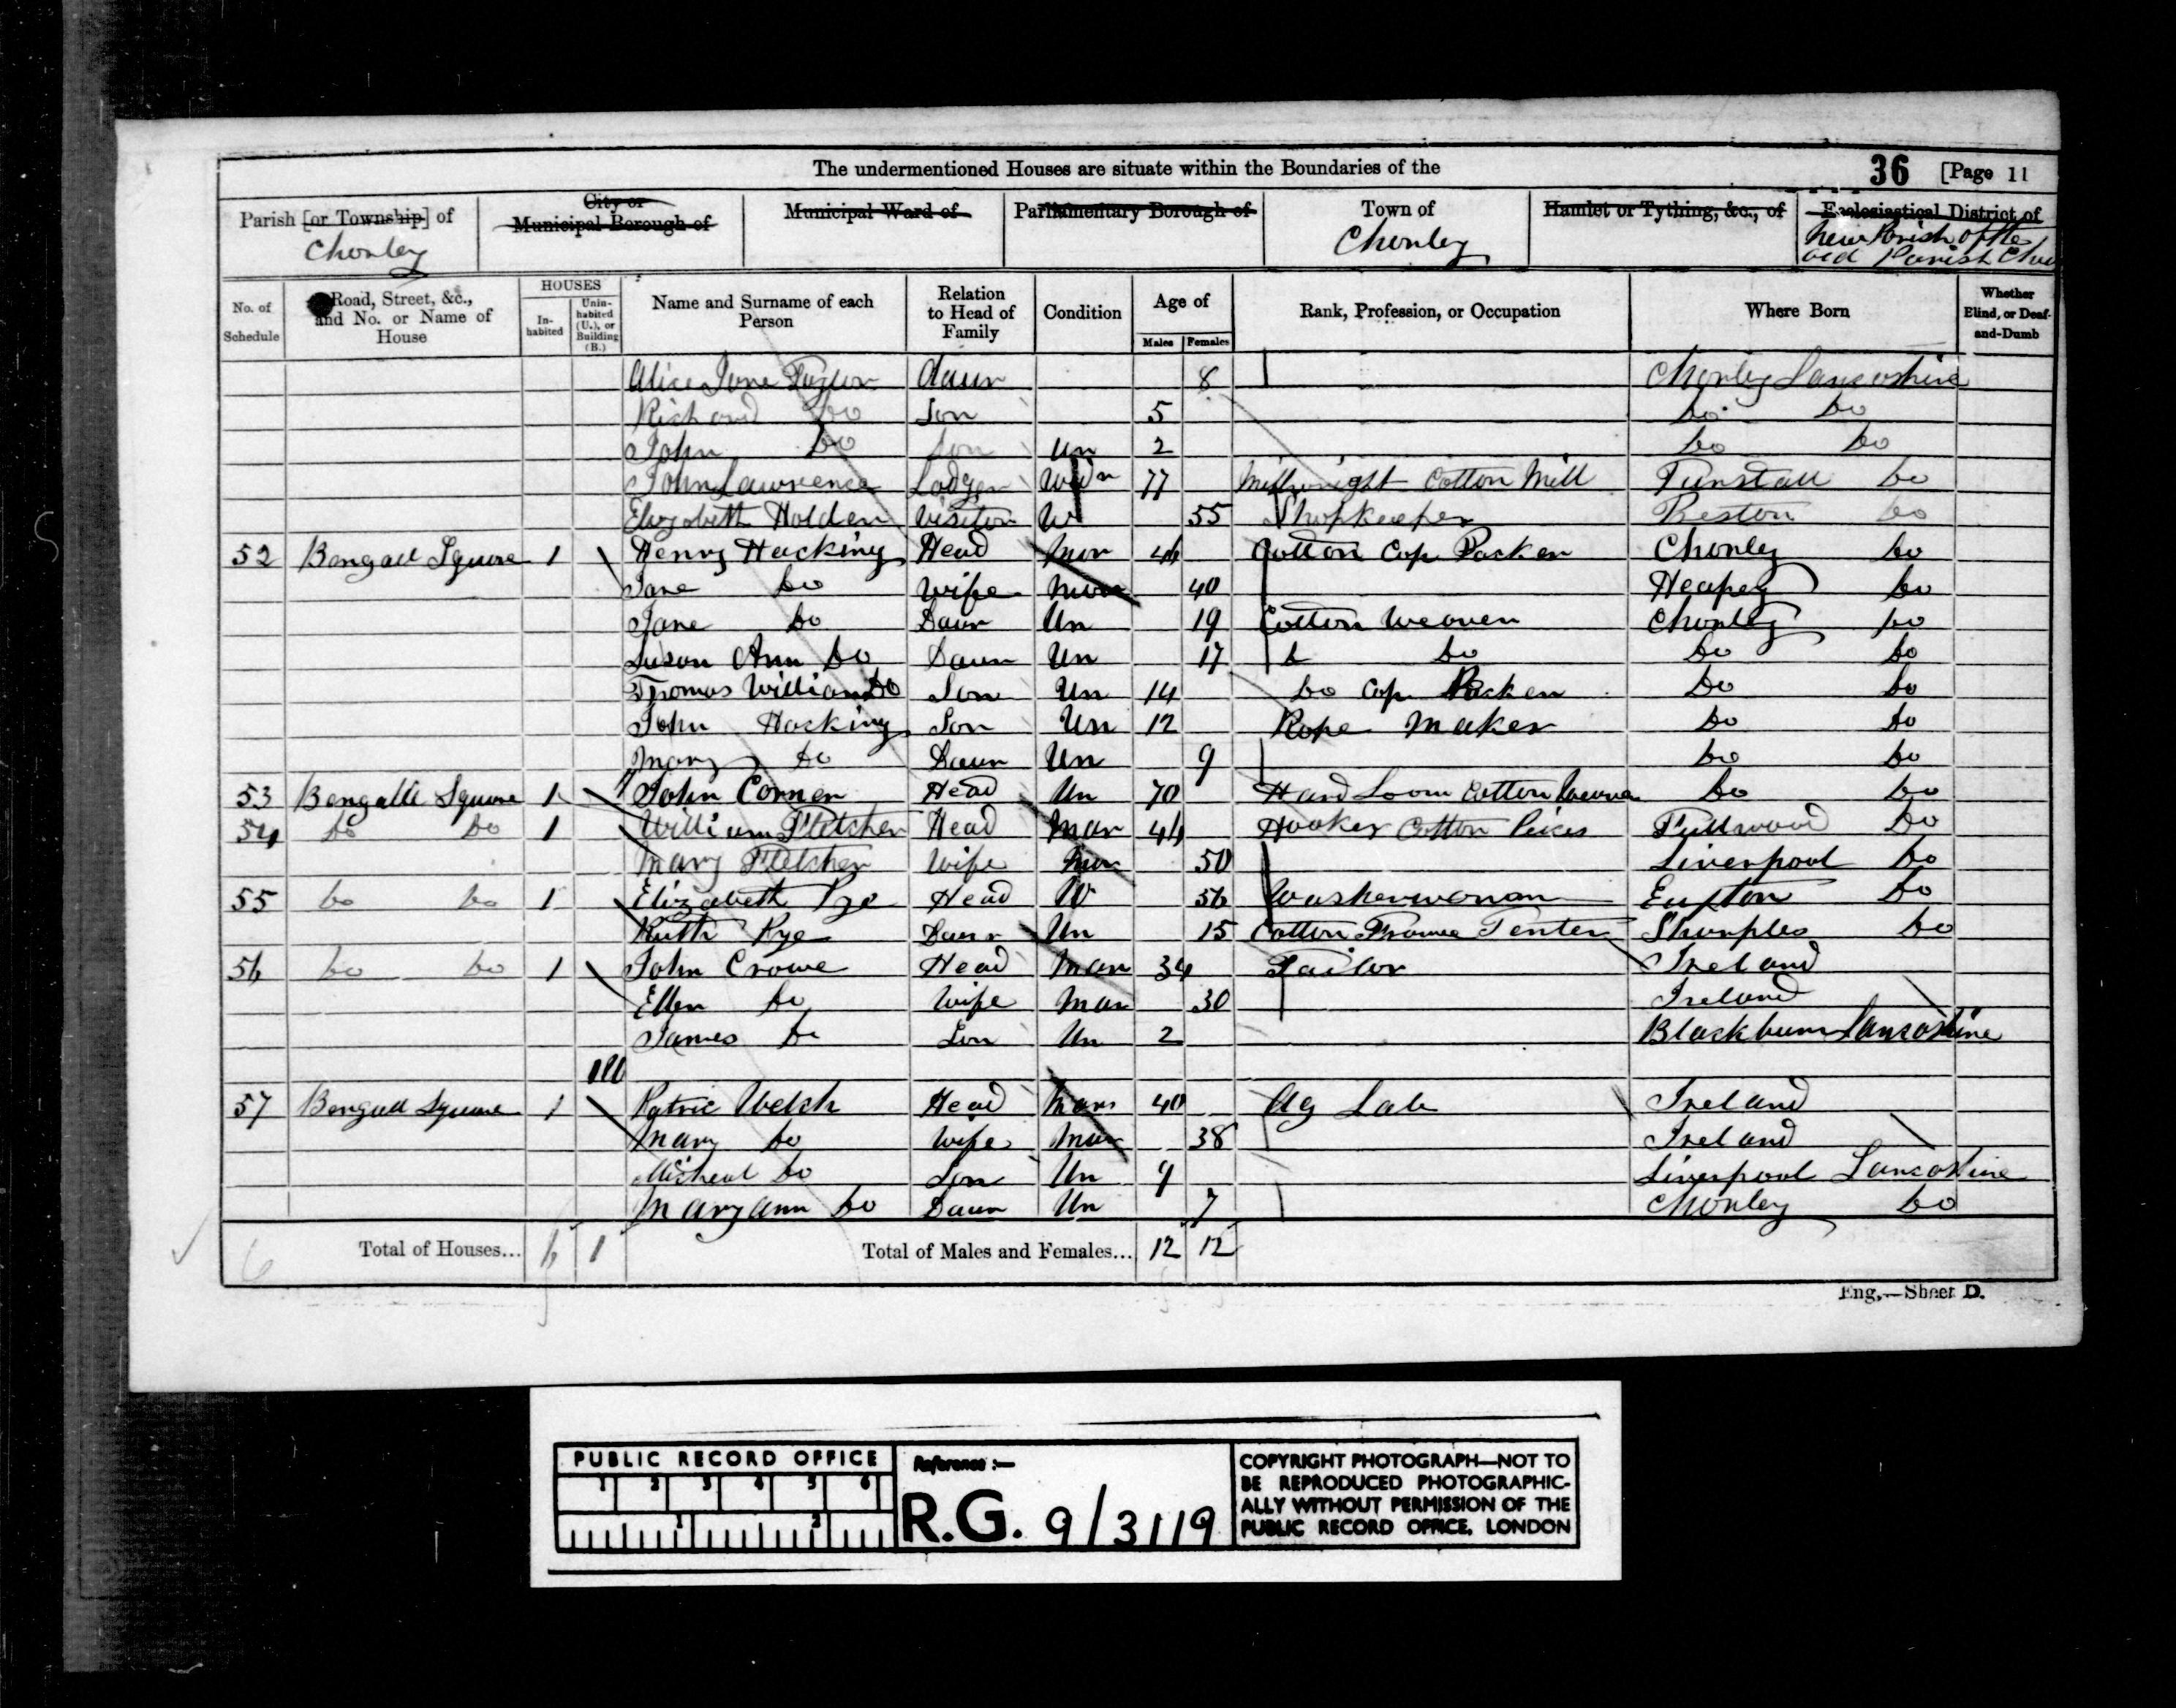 The undermentioned Houses are situate within the Boundaries of the 36 [Page 11
Parish [or Township] of Chorley City or Municipal Borough of Municipal Ward of Parliamentary Borough of Town of Chorley Hamlet or Tything, &c., of Ecclesiastical District of New Parish of the old Parish
No. of Schedule Road, Street, &c., and No. or Name of House HOUSES Inhabited Uninhabited (U.), or Building (B.) Name and Surname of each Person Relation to Head of Family Condition Age of Males Females Rank, Profession, or Occupation Where Born Whether Blind, or Deaf-and-Dumb
Alice Jane Taylor Daur 8 Chorley Lancashire
Richard Do Son 5 Do Do
John Do Son Un 2 Do Do
John Lawrence Lodger Widr 77 Millwright Cotton Mill Tunstall Do
Elizabeth Holden Visitor W 55 Shopkeeper Preston Do
52 Bengall Square 1 Henry Hacking Head Mar 46 Cotton Cop Packer Chorley Do
Jane Do Wife Mar 40 Heapey Do
Jane Do Daur Un 19 Cotton Weaver Chorley Do
Susan Ann Do Daur Un 17 Do Do Do
Thomas William Do Son Un 14 Do Cop Packer Do Do
John Hacking Son Un 12 Rope Maker Do Do
Mary Do Daur Un 9 Do Do
53 Bengalle Square 1 John Corner Head Un 70 Hand Loom Cotton Weaver Do Do
54 Do Do 1 William Fletcher Head Mar 44 Hooker Cotton Peices Fullwood Do
Mary Fletcher Wife Mar 50 Liverpool Do
55 Do Do 1 Elizabeth Pye Head W 56 Washerwoman Euxton Do
Ruth Pye Daur Un 15 Cotton Frame Tenter Sharples Do
56 Do Do 1 John Crowe Head Mar 34 Tailor Ireland
Ellen Do Wife Mar 30 Ireland
James Do Son Un 2 Blackburn Lancashire
1U
57 Bengall Square 1 Patric Welch Head Mar 40 Ag Lab Ireland
Mary Do Wife Mar 38 Ireland
Micheal Do Son Un 9 Liverpool Lancashire
Mary Ann Do Daur Un 7 Chorley Do
6 Total of Houses... 6 1 Total of Males and Females... 12 12
Eng.—Sheet D.
PUBLIC RECORD OFFICE
1 2 3 4 5 6
1 2
Reference :—
R.G. 9/3119
COPYRIGHT PHOTOGRAPH—NOT TO
BE REPRODUCED PHOTOGRAPHIC-
ALLY WITHOUT PERMISSION OF THE
PUBLIC RECORD OFFICE, LONDON